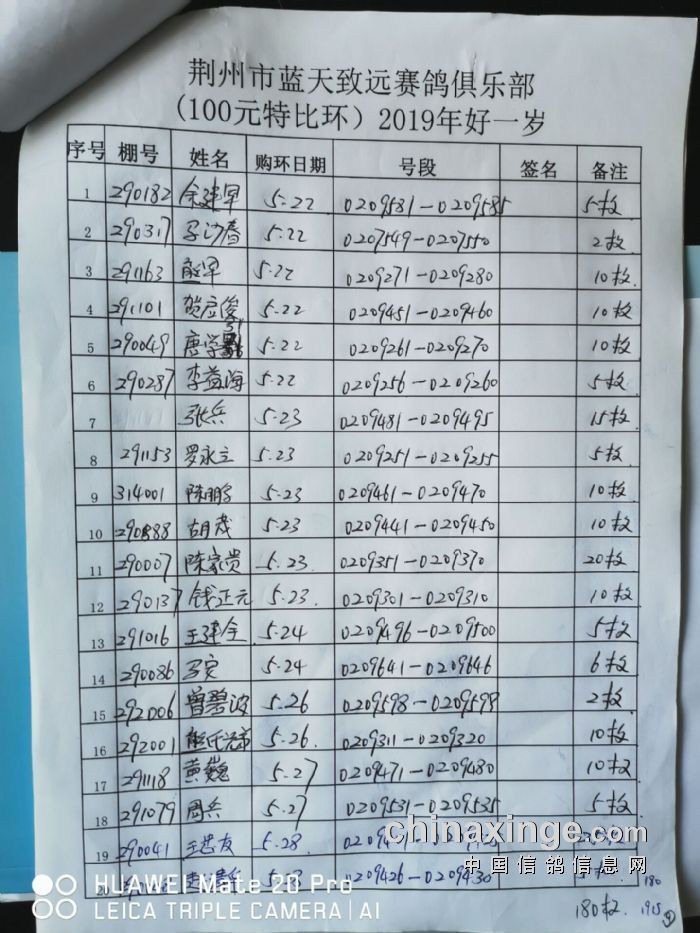 荆州市蓝天致远赛鸽俱乐部
（100元特比环）2019年好一岁
序号 棚号 姓名 购环日期 号段 签名 备注
1 290182 余建军 5.22 0209581-0209585 5枚
2 290317 5.22 0207549-0207550 2枚
3 291163 熊军 5.22 0209271-0209280 10枚
4 291101 贺应俊 5.22 0209451-0209460 10枚
5 290049 唐学 5.22 0209261-0209270 10枚
6 290287 李益海 5.22 0209256-0209260 5枚
7 张兵 5.23 0209481-0209495 15枚
8 291153 罗永立 5.23 0209251-0209255 5枚
9 314001 陈鹏 5.23 0209461-0209470 10枚
10 290888 胡茂 5.23 0209441-0209450 10枚
11 290007 陈家贵 5.23. 0209351-0209370 20枚
12 290137 钱正元 5.23. 0209301-0209310 10枚
13 291016 王建全 5.24 0209496-0209500 5枚
14 290086 马实 5.24 0209641-0209646 6枚
15 292006 曾碧波 5.26 0209598-0209598 2枚
16 292001 5.26. 0209311-0209320 10枚
17 291118 黄巍 5.27 0209471-0209480 10枚
18 291079 周兵 5.27 0209531-0209535 5枚
19 290041 王艺友 5.28.
20 0209426-0209430
180枚. 180
chinaxinge.com
中国信鸽信息网
HUAWEI Mate 20 Pro
LEICA TRIPLE CAMERA | AI